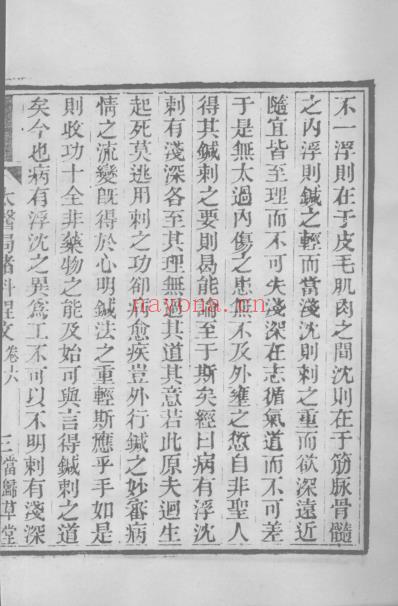 不一浮則在于皮毛肌肉之間沈則在于筋脉骨髓
之内浮則鍼之輕而當淺沈則刺之重而欲深遠近
隨宜皆至理而不可失淺深在志循氣道而不可差
于是無太過内傷之患無不及外壅之愆自非聖人
得其鍼刺之要則曷能論至于斯矣經曰病有浮沈
刺有淺深各至其理無過其道其意若此原夫迴生
起死莫逃用刺之功卻病愈疾豈外行鍼之妙審病
情之流變既得於心明鍼法之重輕斯應乎手如是
則收功十全非藥物之能及始可與言得鍼刺之道
矣今也病有浮沈之異爲工不可以不明刺有淺深
太醫局諸科程文 卷六 三 當歸草堂
nayona.cn